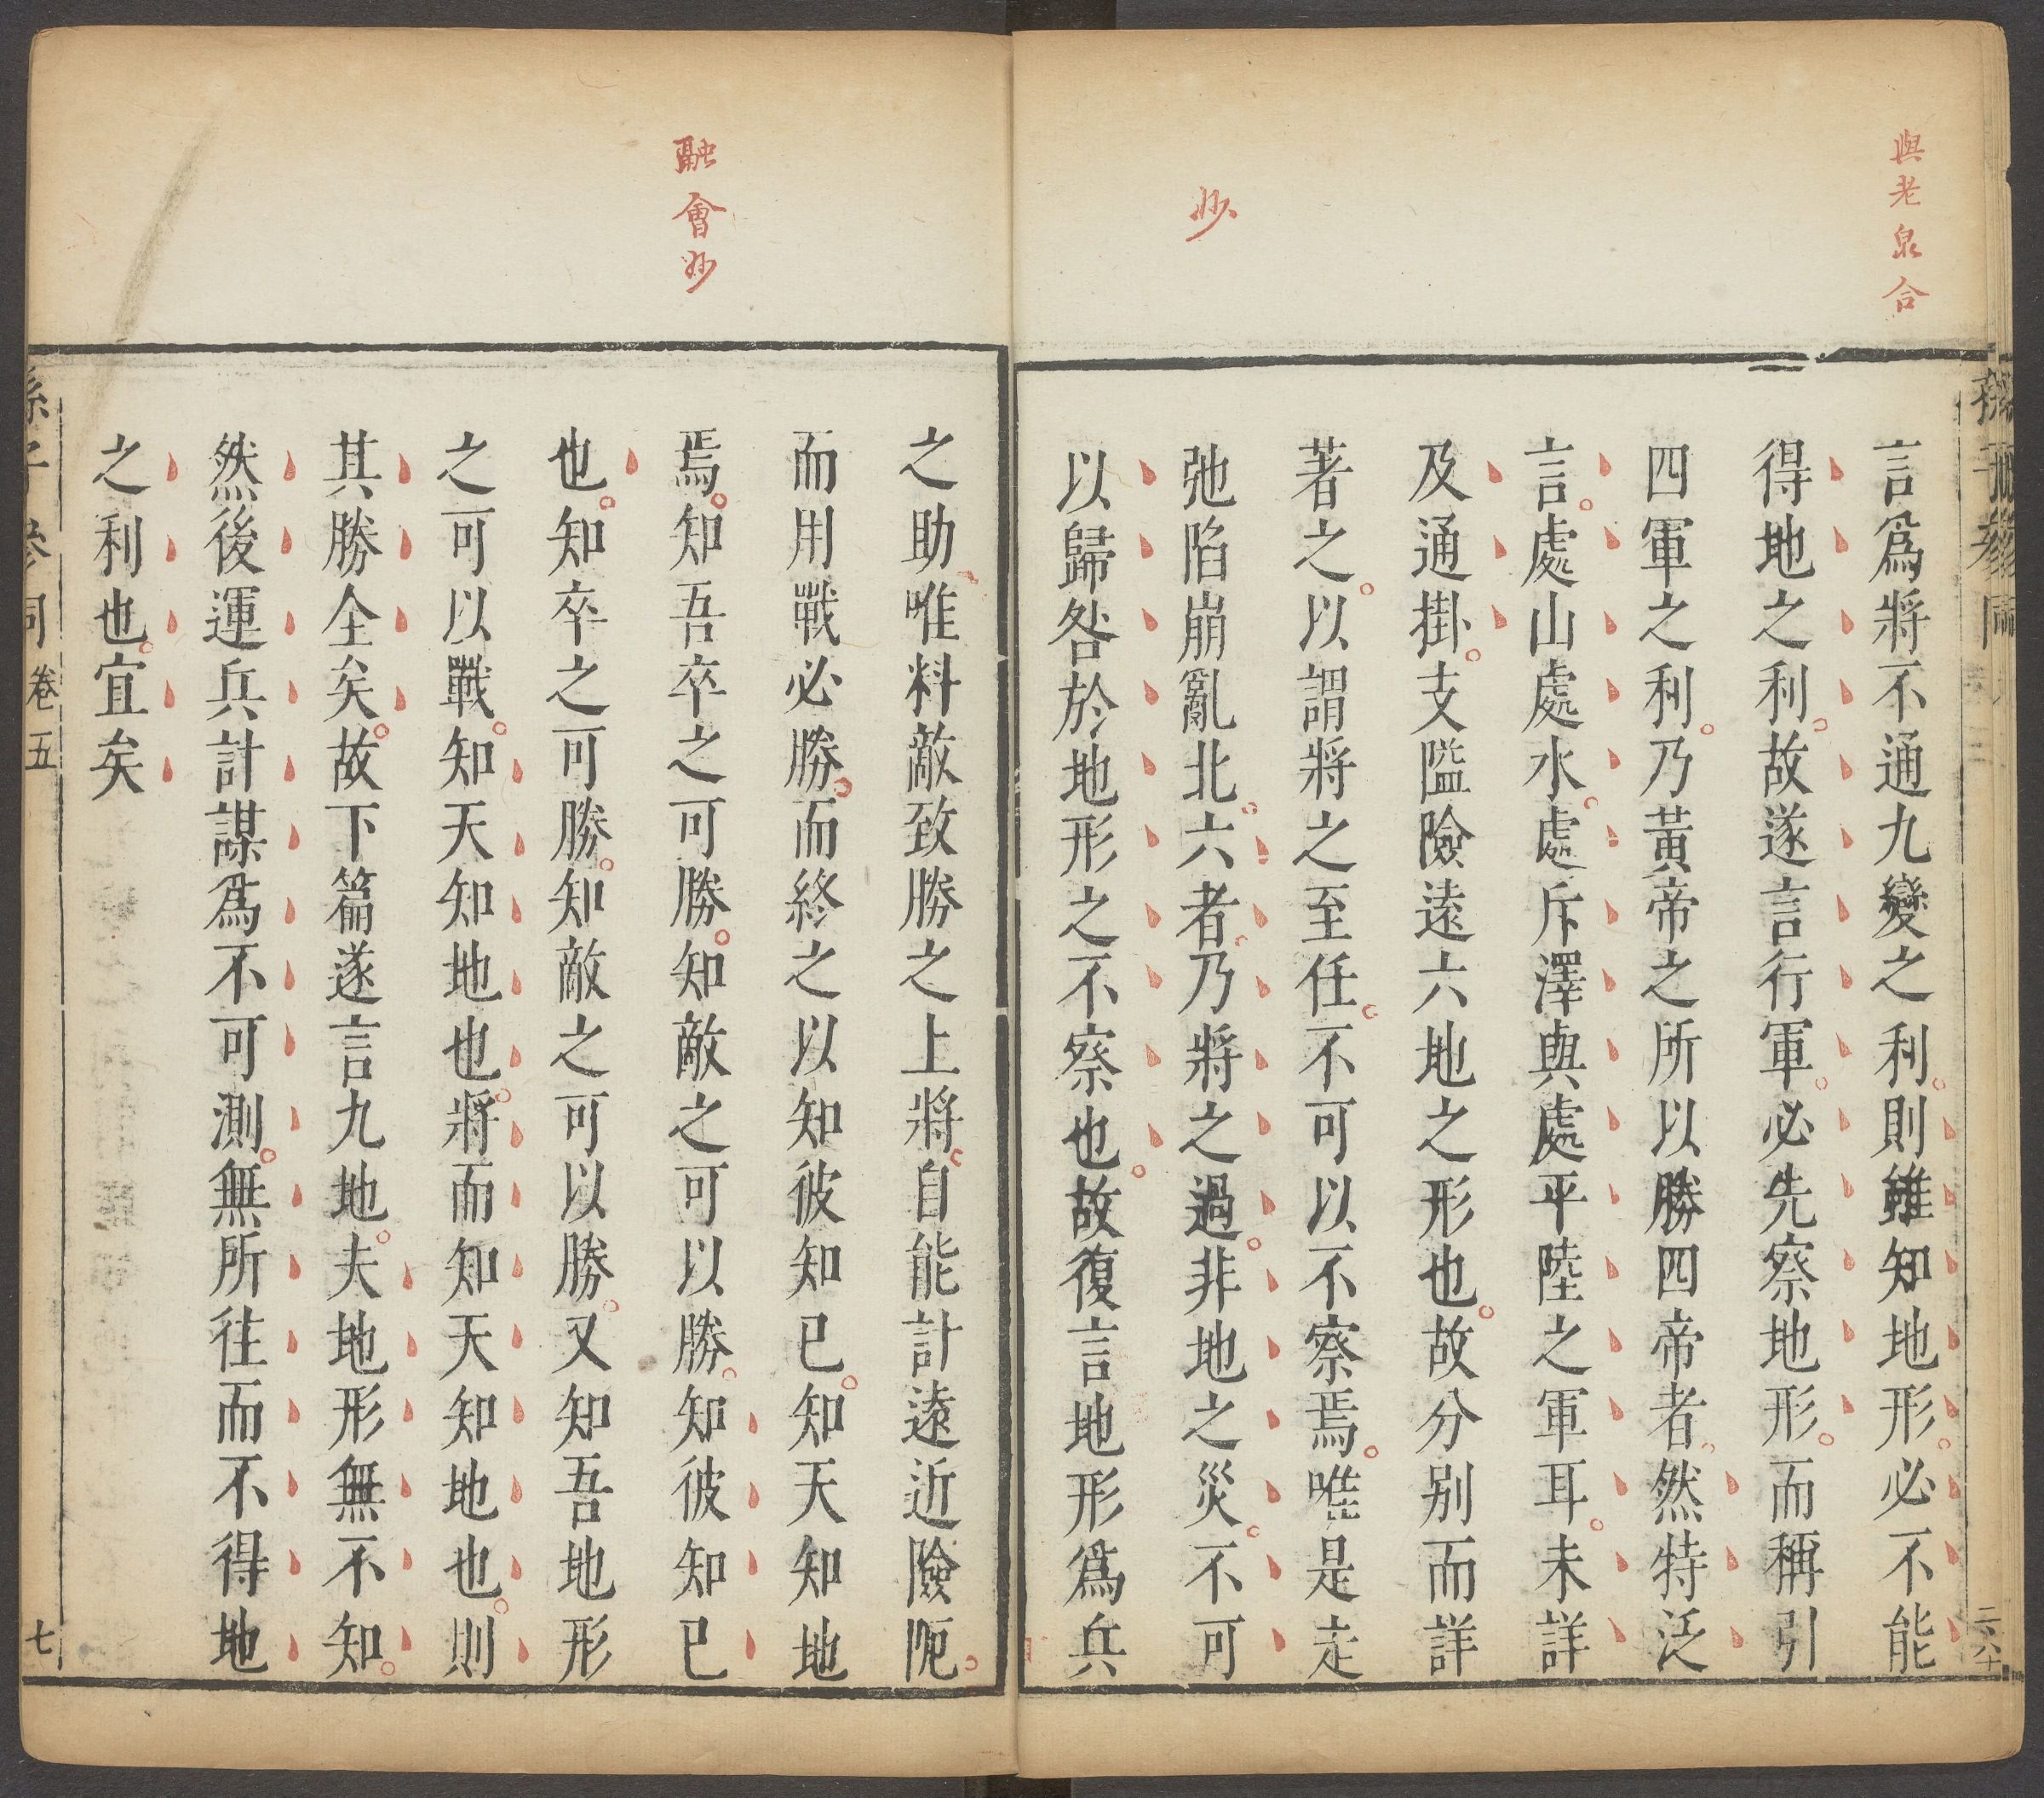 與老泉合
妙
言爲將不通九變之利則雖知地形必不能
得地之利故遂言行軍必先察地形而稱引
四軍之利乃黃帝之所以勝四帝者然特泛
言處山處水處斥澤與處平陸之軍耳未詳
及通掛支隘險遠六地之形也故分别而詳
著之以謂將之至任不可以不察焉唯是走
弛陷崩亂北六者乃將之過非地之災不可
以歸咎於地形之不察也故復言地形爲兵
融會妙
之助唯料敵致勝之上將自能計遠近險阨
而用戰必勝而終之以知彼知已知天知地
焉知吾卒之可勝知敵之可以勝知彼知已
也知卒之可勝知敵之可以勝又知吾地形
之可以戰知天知地也將而知天知地也則
其勝全矣故下篇遂言九地夫地形無不知
然後運兵計謀爲不可測無所往而不得地
之利也宜矣
孫子參同卷五 七